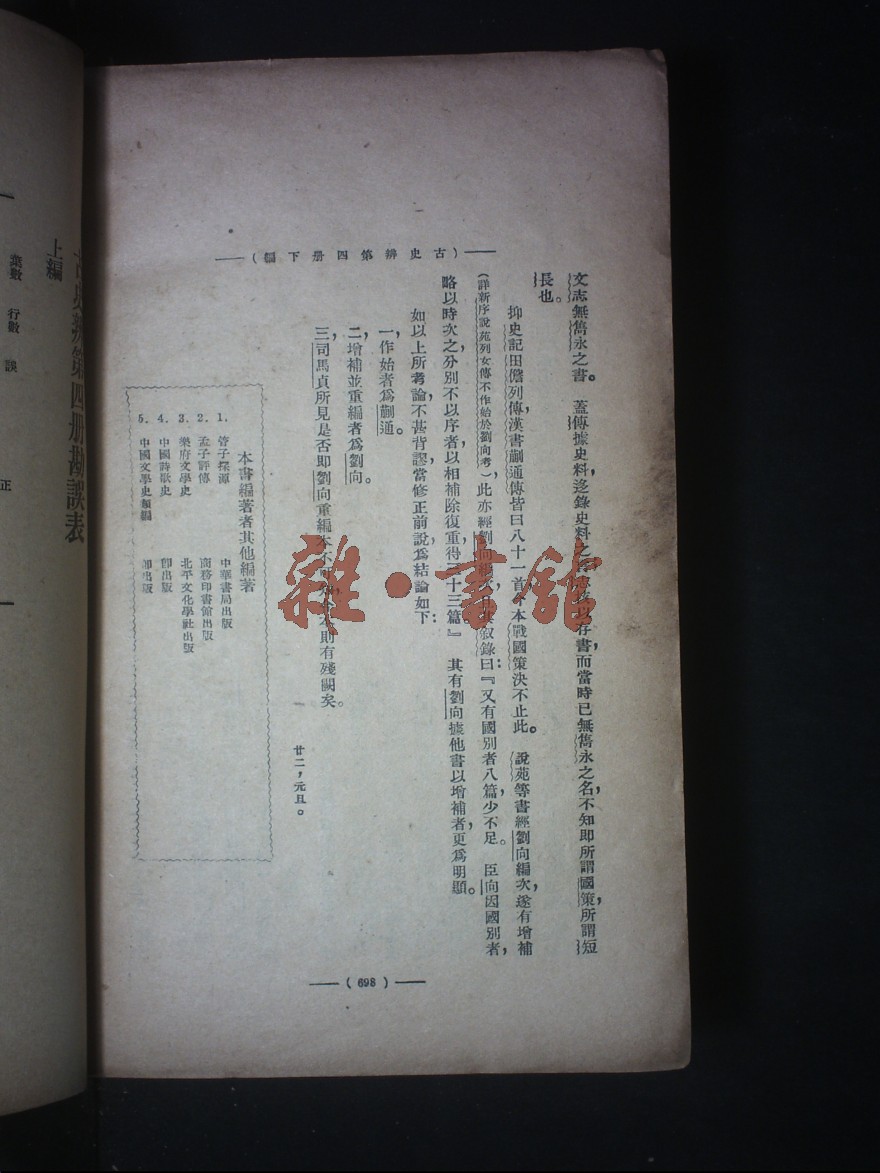 (古史辨第四册下編)
文志無雋永之書。蓋傳據史料迻錄史料之
以存書,而當時已無雋永之名,不知即所謂國策,所謂短
長也。
抑史記田儋列傳,漢書蒯通傳皆曰八十一首,今本戰國策決不止此。說苑等書經劉向編次,遂有增補
(詳新序說苑列女傳不作始於劉向考),此亦經劉向編次,
敍錄曰:『又有國別者八篇,少不足。臣向因國別者,
略以時次之,分別不以序者以相補,除復重,得三十三篇。』其有劉向據他書以增補者,更爲明顯。
如以上所考論,不甚背謬,當修正前說爲結論如下:
一,作始者爲蒯通。
二,增補並重編者爲劉向。
三,司馬貞所見是否即劉向重編本不可
則有殘闕矣。
廿二,元旦。
本書編著者其他編著
1. 管子探源 中華書局出版
2. 孟子評傳 商務印書館出版
3. 樂府文學史 北平文化學社出版
4. 中國詩歌史 即出版
5. 中國文學史類編 即出版
(698)
第四册勘誤表
上編
葉數 行數 誤 正
雜·書館